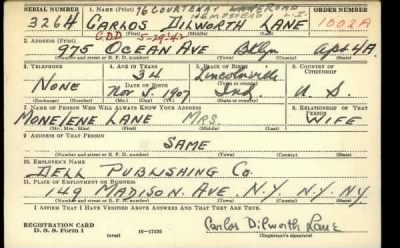 SERIAL NUMBER 1. NAME (Print) 76 COURTENAY ROAD ORDER NUMBER
HEMPSTEAD L-I
3264 CARLOS DILWORTH LANE 1002A
(First) (Middle) (Last)
2. ADDRESS (Print) CDD 5-29-47
975 OCEAN AVE Bklyn Apt 4A
(Number and street or R. F. D. number) (Town) (County) (State)
3. TELEPHONE 4. AGE IN YEARS 5. PLACE OF BIRTH 6. COUNTRY OF CITIZENSHIP
34 Lincolnville
NONE DATE OF BIRTH (Town or county)
Nov 5, 1907 Ind. U. S.
(Mo.) (Day) (Yr.) (State or country)
7. NAME OF PERSON WHO WILL ALWAYS KNOW YOUR ADDRESS 8. RELATIONSHIP OF THAT PERSON
MONELENE LANE MRS. WIFE
(Mr., Mrs., Miss) (First) (Middle) (Last)
9. ADDRESS OF THAT PERSON
SAME
(Number and street or R. F. D. number) (Town) (County) (State)
10. EMPLOYER'S NAME
DELL PUBLISHING CO.
11. PLACE OF EMPLOYMENT OR BUSINESS
149 MADISON. AVE. N.Y. N.Y. NY
(Number and street or R. F. D. number) (Town) (County) (State)
I AFFIRM THAT I HAVE VERIFIED ABOVE ANSWERS AND THAT THEY ARE TRUE.
REGISTRATION CARD Carlos Dilworth Lane
D. S. S. Form 1 (over) 16-17105 (Registrant's signature)